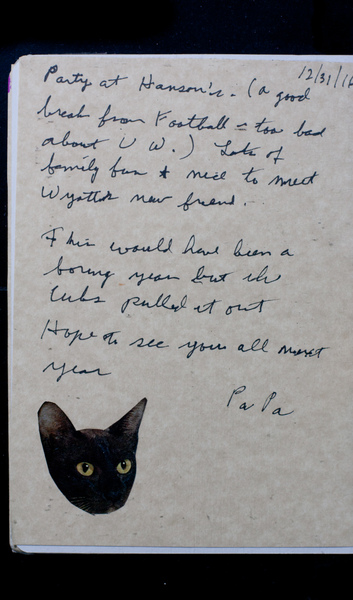 12/31/16
Party at Hanson's. (a good
break from Football = too bad
about U W.) Lots of
family fun + nice to meet
Wyatt's new friend.
This would have been a
boring year but the
Cubs pulled it out
Hope to see you all next
year
Pa Pa